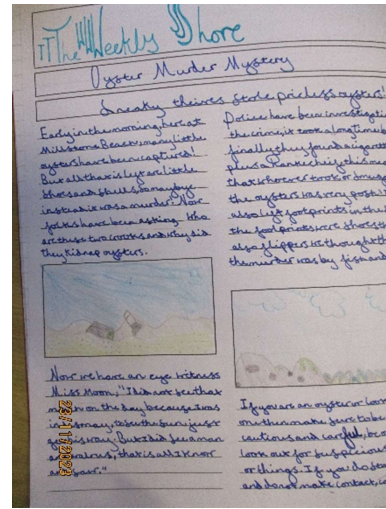 The Weekly Shore
Oyster Murder Mystery
Sneaky theives stole priceless oysters!
Early in the morning, here at
Millstone Beach, many little
oysters have been captured!
But all that is left are little
shoes and shells, so maybe
instead it was a murder. Now
folks have been asking. Who
are these two crooks and why did
they kidnap oysters.
Now we have an eye witness
Miss Moon, "I did not see that
on the day because I was
to see the sun just
his way. But I did see a man
walrus, that is all I know
Police have been investigati
the crime, it took a long time b
finally they found a
plus a this me
that who ever took or
the oysters was very posh. H
also left footprints in the
the footprints were shoes
also flippers we thought th
the murder was by fish and
If you are an oyster or
on then make sure to be
cautious and careful,
look out for suspicious
or things. If you do
and do not make contact,
23/11/2023